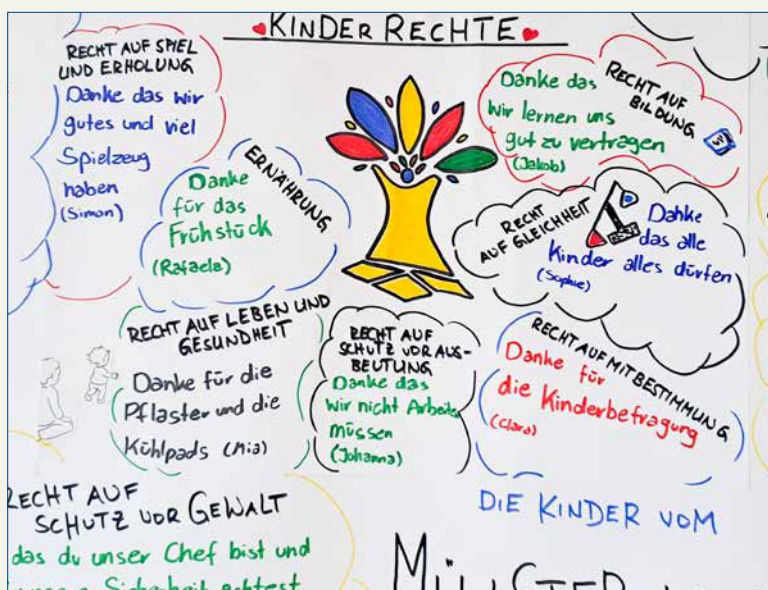 KINDER RECHTE
RECHT AUF SPIEL
UND ERHOLUNG
Danke das wir
gutes und viel
Spielzeug
haben
(Simon)
ERNÄHRUNG
Danke
für das
Frühstück
(Rafaela)
RECHT AUF
BILDUNG
Danke das
wir lernen uns
gut zu vertragen
(Jakob)
RECHT
AUF GLEICHHEIT
Danke
das alle
Kinder alles dürfen
(Sophie)
RECHT AUF LEBEN UND
GESUNDHEIT
Danke für die
Pflaster und die
Kühlpads (Mia)
RECHT AUF
SCHUTZ VOR AUS-
BEUTUNG
Danke das
wir nicht Arbeiten
müssen
(Johanna)
RECHT AUF MITBESTIMMUNG
Danke für
die Kinderbefragung
(Clara)
RECHT AUF
SCHUTZ VOR GEWALT
das du unser Chef bist und
Sicherheit achtest
DIE KINDER VOM